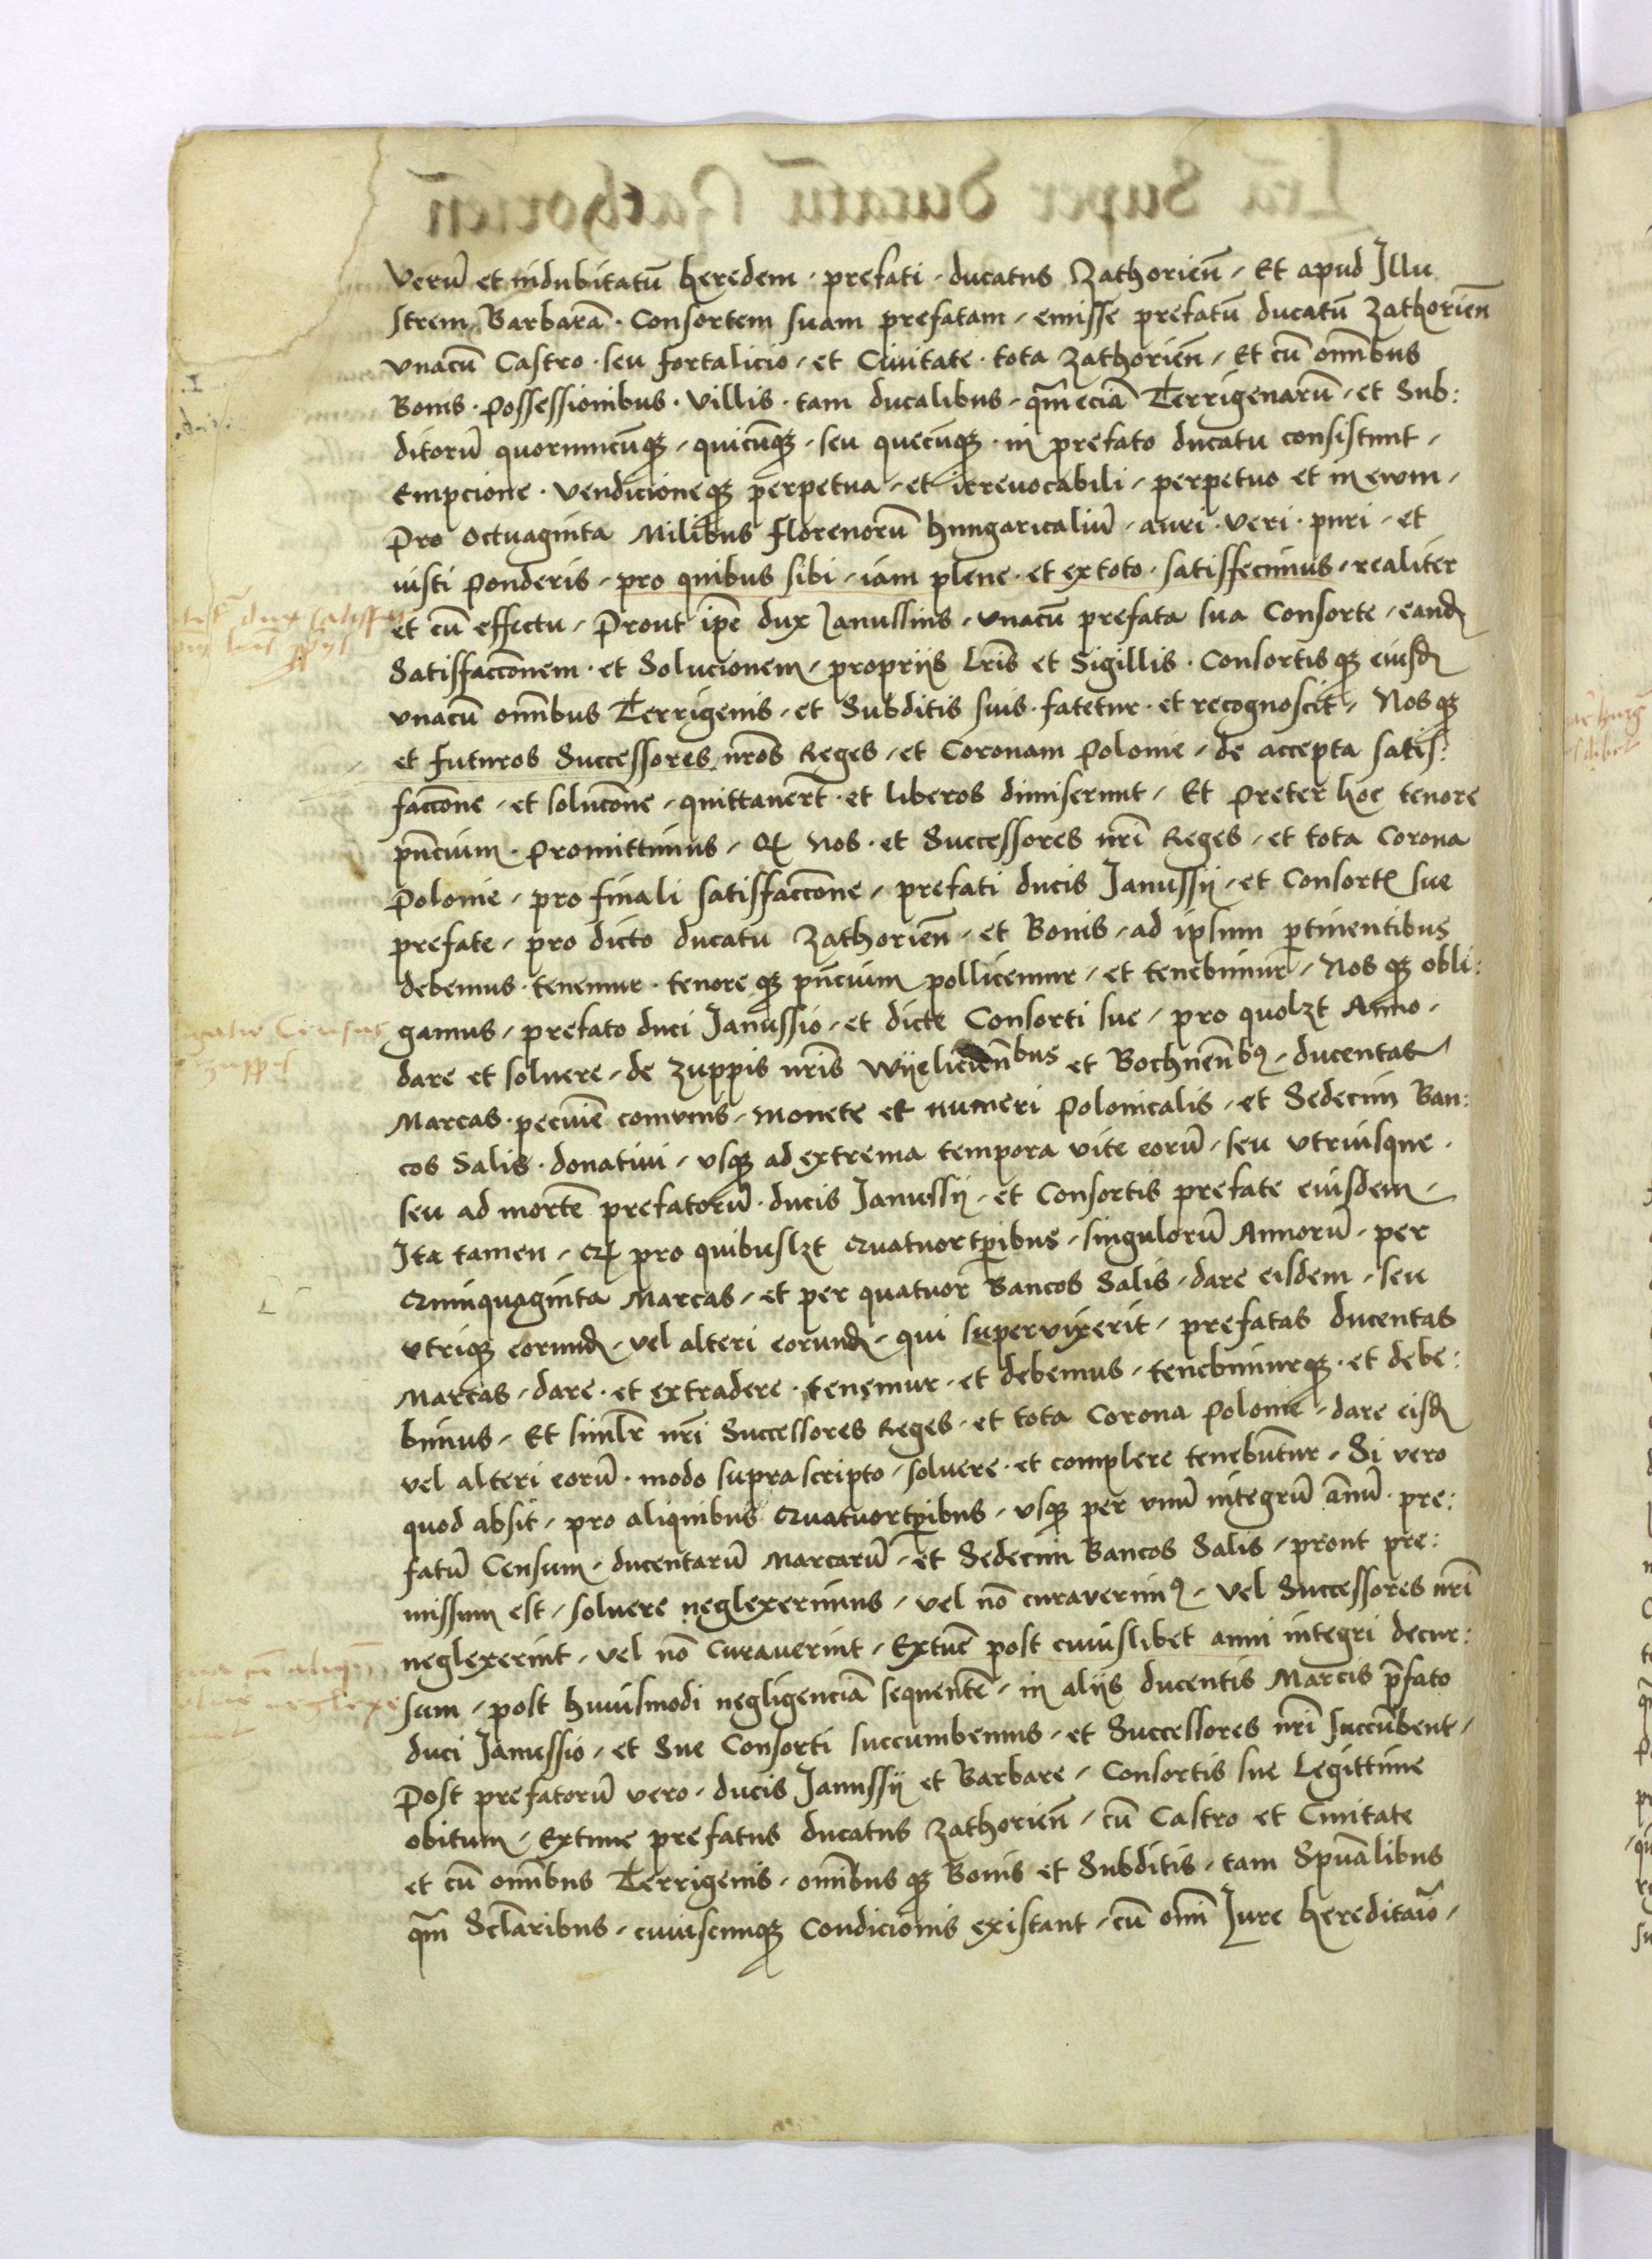 Verū et indubitatū heredem · prefati · ducatus Zathorień / Et apud Illu
strem Barbarā · Consortem suam prefatam / emisse prefatū ducatū Zathorień
vnacū Castro · seu fortalicio / et Ciuitate · tota Zathorień / Et cū om̄ibus
Bonis · Possessionibus · Villis · tam ducalibus / q̄m eciā Terrigenarū / et Sub:
ditorū quorumcūqꝫ / quicūqꝫ / seu quecūqꝫ · in prefato ducatu consistunt /
Empcione · vendicioneqꝫ perpetua / et irreuocabili / perpetuo et in ewm /
Pro Octuaginta Milibus florenorū hungaricaliū / auri · veri · puri / et
iusti Ponderis / pro quibus sibi / iam plene · et ex toto · satisfecimus / realiter
et cū effectu / Prout ip̄e dux Janussius / vnacū prefata sua Consorte / eandꝫ
Satisfacc̄onem · et Solucionem / proprijs Lr̄is et Sigillis · Consortis qꝫ eiusdꝫ
vnacū om̄ibus Terrigenis / et Subditis suis · fatetur · et recognoscit / Nos qꝫ
et futuros Successores nr̄os Reges / et Coronam Polonie / de accepta satis:
facc̄one / et soluc̄one / quittauerūt · et liberos dimiserunt / Et Preter hoc tenore
pn̄cium · Promittimus / Qꝫ Nos · et Successores nr̄i Reges / et tota Corona
Polonie / pro finali satisfacc̄one / prefati ducis Janussij / et Consortꝭ sue
prefate / pro dicto ducatu Zathorień / et Bonis / ad ipsum ꝑtinentibus
debemus · tenemur · tenore qꝫ pn̄cium pollicemur / et tenebimur / Nos qꝫ obli:
gamus / prefato duci Janussio / et dicte Consorti sue / pro quolꝫt Anno ·
dare et soluere / de zuppis nr̄is Wijeliciēnbus et Bochneñbꝰ / ducentas
Marcas · pecuīe com̄unis / monete et numeri Polonicalis / et Sedecim Ban:
cos Salis · donatiui / vsqꝫ ad extrema tempora vite eorū / seu vtriusque ·
seu ad mortē prefatorū · ducis Janussij / et Consortis prefate eiusdem /
Ita tamen / Qꝫ pro quibuslꝫt Quatuortꝑibus / singulorū Annorū / per
Quinquaginta Marcas / et per quatuor Bancos Salis / dare eisdem / seu
vtriqꝫ eorundꝫ / vel alteri eorundꝫ / qui supervixerit / prefatas ducentas
Marcas / dare · et extradere · tenemur · et debemus / tenebimurqꝫ · et debe:
bimus / Et simlr̄ nr̄i Successores Reges / et tota Corona Polonie / dare eisdꝫ
vel alteri eorū · modo supra scripto / soluere · et complere tenebūtur / Si vero
quod absit / pro aliquibus Quatuortꝑibus / vsqꝫ per vnū integrū annū · pre:
fatū Censum / ducentarū Marcarū / et Sedecim Bancos Salis / prout pre:
missum est / soluere neglexerimus / vel nō curaverimꝰ / vel Successores nr̄i
neglexerint / vel nō Curauerint / Extūc post cuiuslibet anni integri decur:
sum / post huiusmodi negligenciā sequentē / in alijs ducentis Marcis p̄fato
duci Janussio / et Sue Consorti succumbemus / et Successores nr̄i succūbent /
Post prefatorū vero · ducis Janussij et Barbare / Consortis sue Legittime
obitum / Extunc prefatus ducatus Zathorień / cū Castro et Ciuitate
et cū om̄ibus Terrigenis / om̄ibus qꝫ Bonis et Subditis / tam Sp̄ualibus
q̄m Sc̄laribus / cuiuscumqꝫ Condicionis existant / cū om̄i Iure hereditaīo /